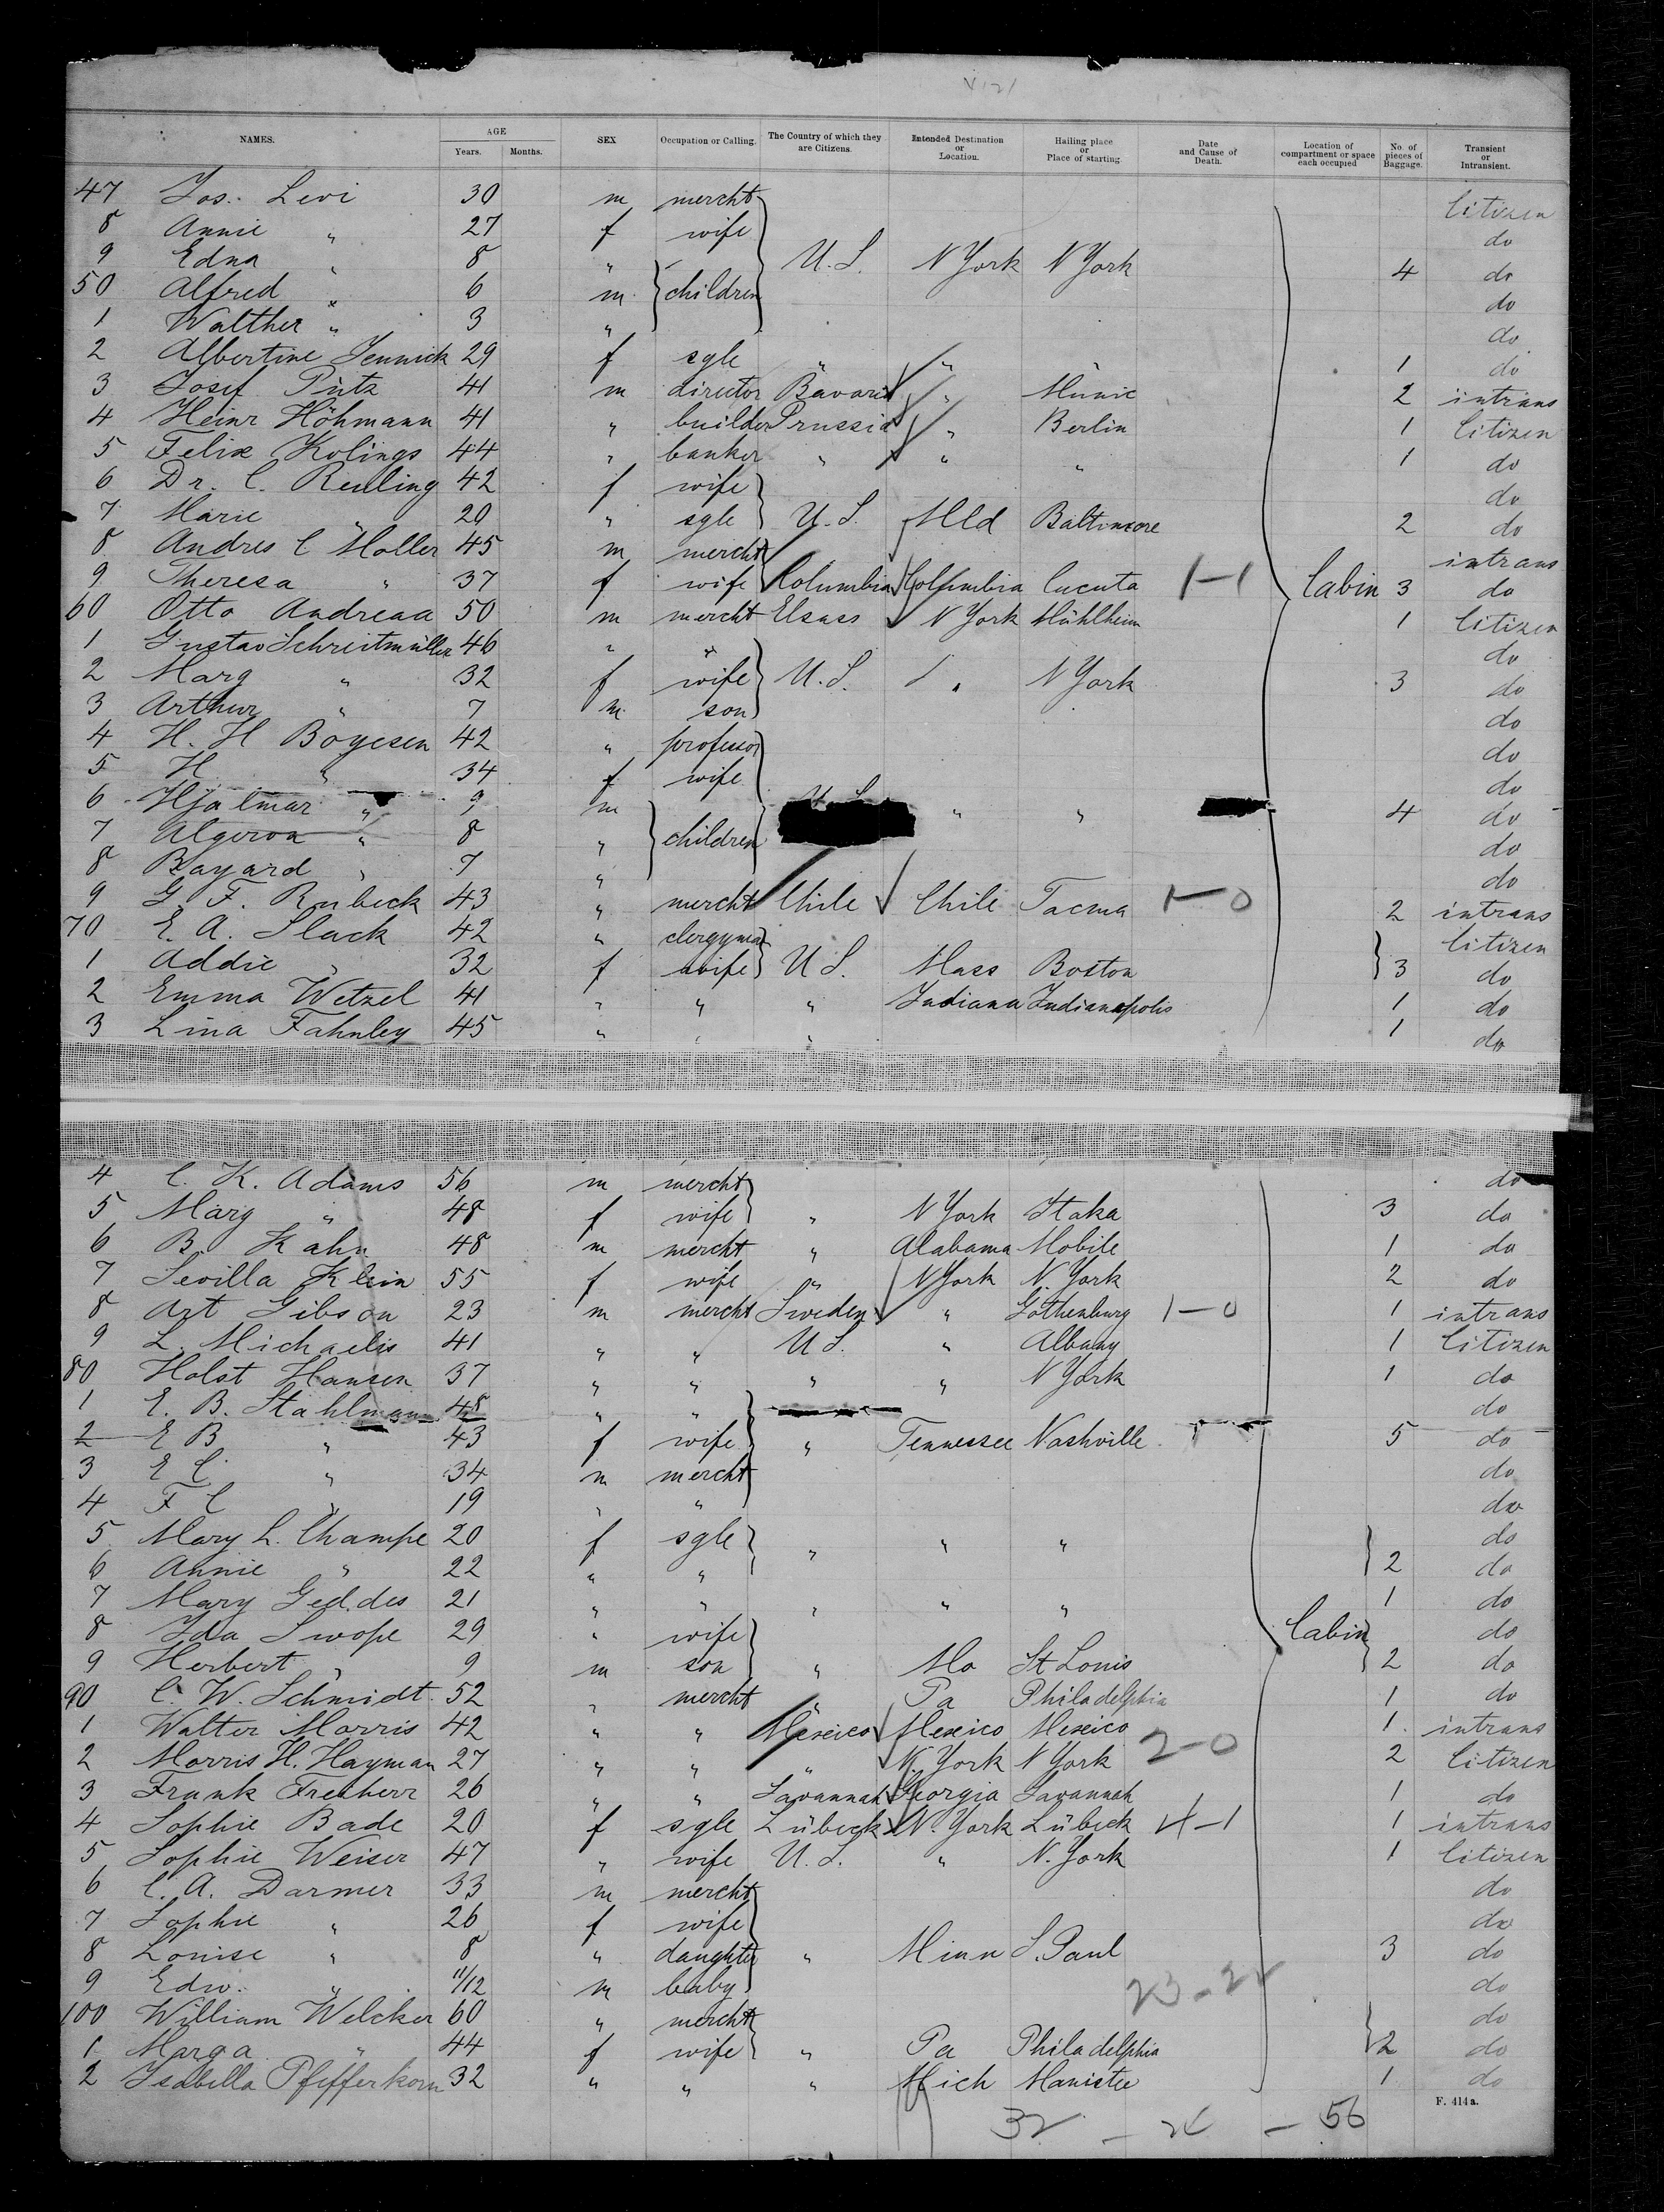 NAMES. AGE Years. Months. SEX Occupation or Calling. The Country of which they are Citizens. Intended Destination or Location. Hailing place or Place of starting. Date and Cause of Death. Location of compartment or space each occupied No. of pieces of Baggage. Transient or Intransient.
47 Jos. Levi 30 m mercht Citizen
8 Annie " 27 f wife do
9 Edna " 8 " U.S. N York N York 4 do
50 Alfred " 6 m children do
1 Walther " 3 " do
2 Albertine Jennick 29 f sgle " " " 1 do
3 Josef Pütz 41 m director Bavaria " Munic 2 intrans
4 Heinr Höhmann 41 " builder Prussia " Berlin 1 Citizen
5 Felix Kolings 44 " banker " " " 1 do
6 Dr. C. Reuling 42 f wife do
7 Marie " 20 " sgle U.S. Mld Baltimore 2 do
8 Andres C Moller 45 m mercht intrans
9 Theresa " 37 f wife Columbia Columbia Cucuta 1-1 Cabin 3 do
60 Otto Andreaa 50 m mercht Elsass N York Mühlheim 1 Citizen
1 Gustav Schreitmüller 46 " " do
2 Marg " 32 f wife U.S. " N York 3 do
3 Arthur " 7 m son do
4 H. H Boyesen 42 " professor do
5 H " 34 f wife do
6 Hjalmar " 9 m U S " " 4 do
7 Algeron " 8 " children do
8 Bayard " 7 " do
9 G. F. Rubeck 43 " mercht Chile Chile Tacma 1-0 2 intrans
70 E. A. Slack 42 " clergyman Citizen
1 Addie " 32 f wife U S. Mass Boston 3 do
2 Emma Wetzel 41 " " " Indiana Indianapolis 1 do
3 Lina Fahnley 45 " " " 1 do
4 C. K. Adams 56 m mercht do
5 Marg " 48 f wife " N York Itaka 3 do
6 B. Kahn 48 m mercht " Alabama Mobile 1 do
7 Sevilla Klein 55 f wife " N York N. York 2 do
8 Art Gibson 23 m mercht Sweden " Gothenburg 1-0 1 intrans
9 L. Michaelis 41 " " U S. " Albany 1 Citizen
80 Holst Hansen 37 " " " " N York 1 do
1 E. B. Stahlman 48 " " do
2 E B " 43 f wife " Tennessee Nashville 5 do
3 E C " 34 m mercht do
4 F C " 19 " " do
5 Mary L. Champe 20 f sgle " " " do
6 Annie " 22 " " 2 do
7 Mary Geddes 21 " " " " " 1 do
8 Ida Swope 29 " wife Cabin do
9 Herbert " 9 m son " Mo St Louis 2 do
90 C. W. Schmidt 52 " mercht " Pa Philadelphia 1 do
1 Walter Morris 42 " " Mexico Mexico Mexico 2-0 1 intrans
2 Morris H. Hayman 27 " " " N. York N York 2 Citizen
3 Frank Freiherr 26 " " Savannah Georgia Savannah 1 do
4 Sophie Bade 20 f sgle Lübeck N. York Lübeck 1 intrans
5 Sophie Weiser 47 " wife U.S. " N. York 1 Citizen
6 C. A. Darmer 33 m mercht do
7 Sophie " 26 f wife do
8 Louise " 8 " daughter " Minn S. Paul 3 do
9 Edw. " 11/12 m baby do
100 William Welcker 60 " mercht do
1 Marga " 44 f wife " Pa Philadelphia 2 do
2 Isabella Pfefferkorn 32 " " " Mich Manistee 1 do
F. 414a.
32 - 24 - 56